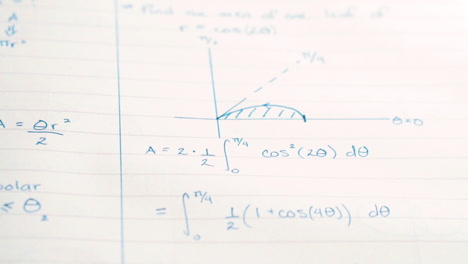 A
πr²
A = θr²/2
polar
≤ θ₂
Find the area of one leaf of
r = cos(2θ)
π/2
π/4
θ=0
A = 2 · 1/2 ∫₀^π/4 cos²(2θ) dθ
= ∫₀^π/4 1/2 (1 + cos(4θ)) dθ